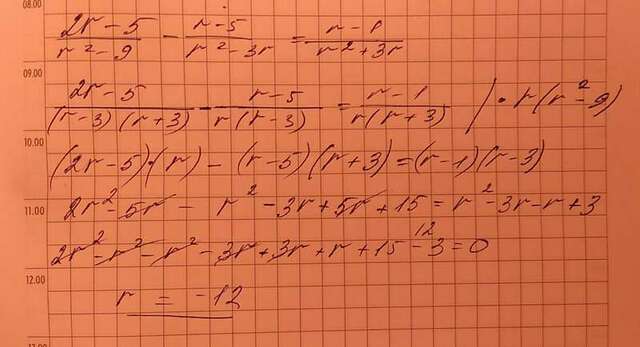 08.00
(2r-5)/(r²-9) - (r-5)/(r²-3r) = (r-1)/(r²+3r)
09.00
(2r-5)/((r-3)(r+3)) - (r-5)/(r(r-3)) = (r-1)/(r(r+3)) / · r(r²-9)
10.00
(2r-5)·(r) - (r-5)(r+3) = (r-1)(r-3)
2r² - 5r - r² - 3r + 5r + 15 = r² - 3r - r + 3
11.00
12
2r² - r² - r² - 3r + 3r + r + 15 - 3 = 0
12.00
r = -12